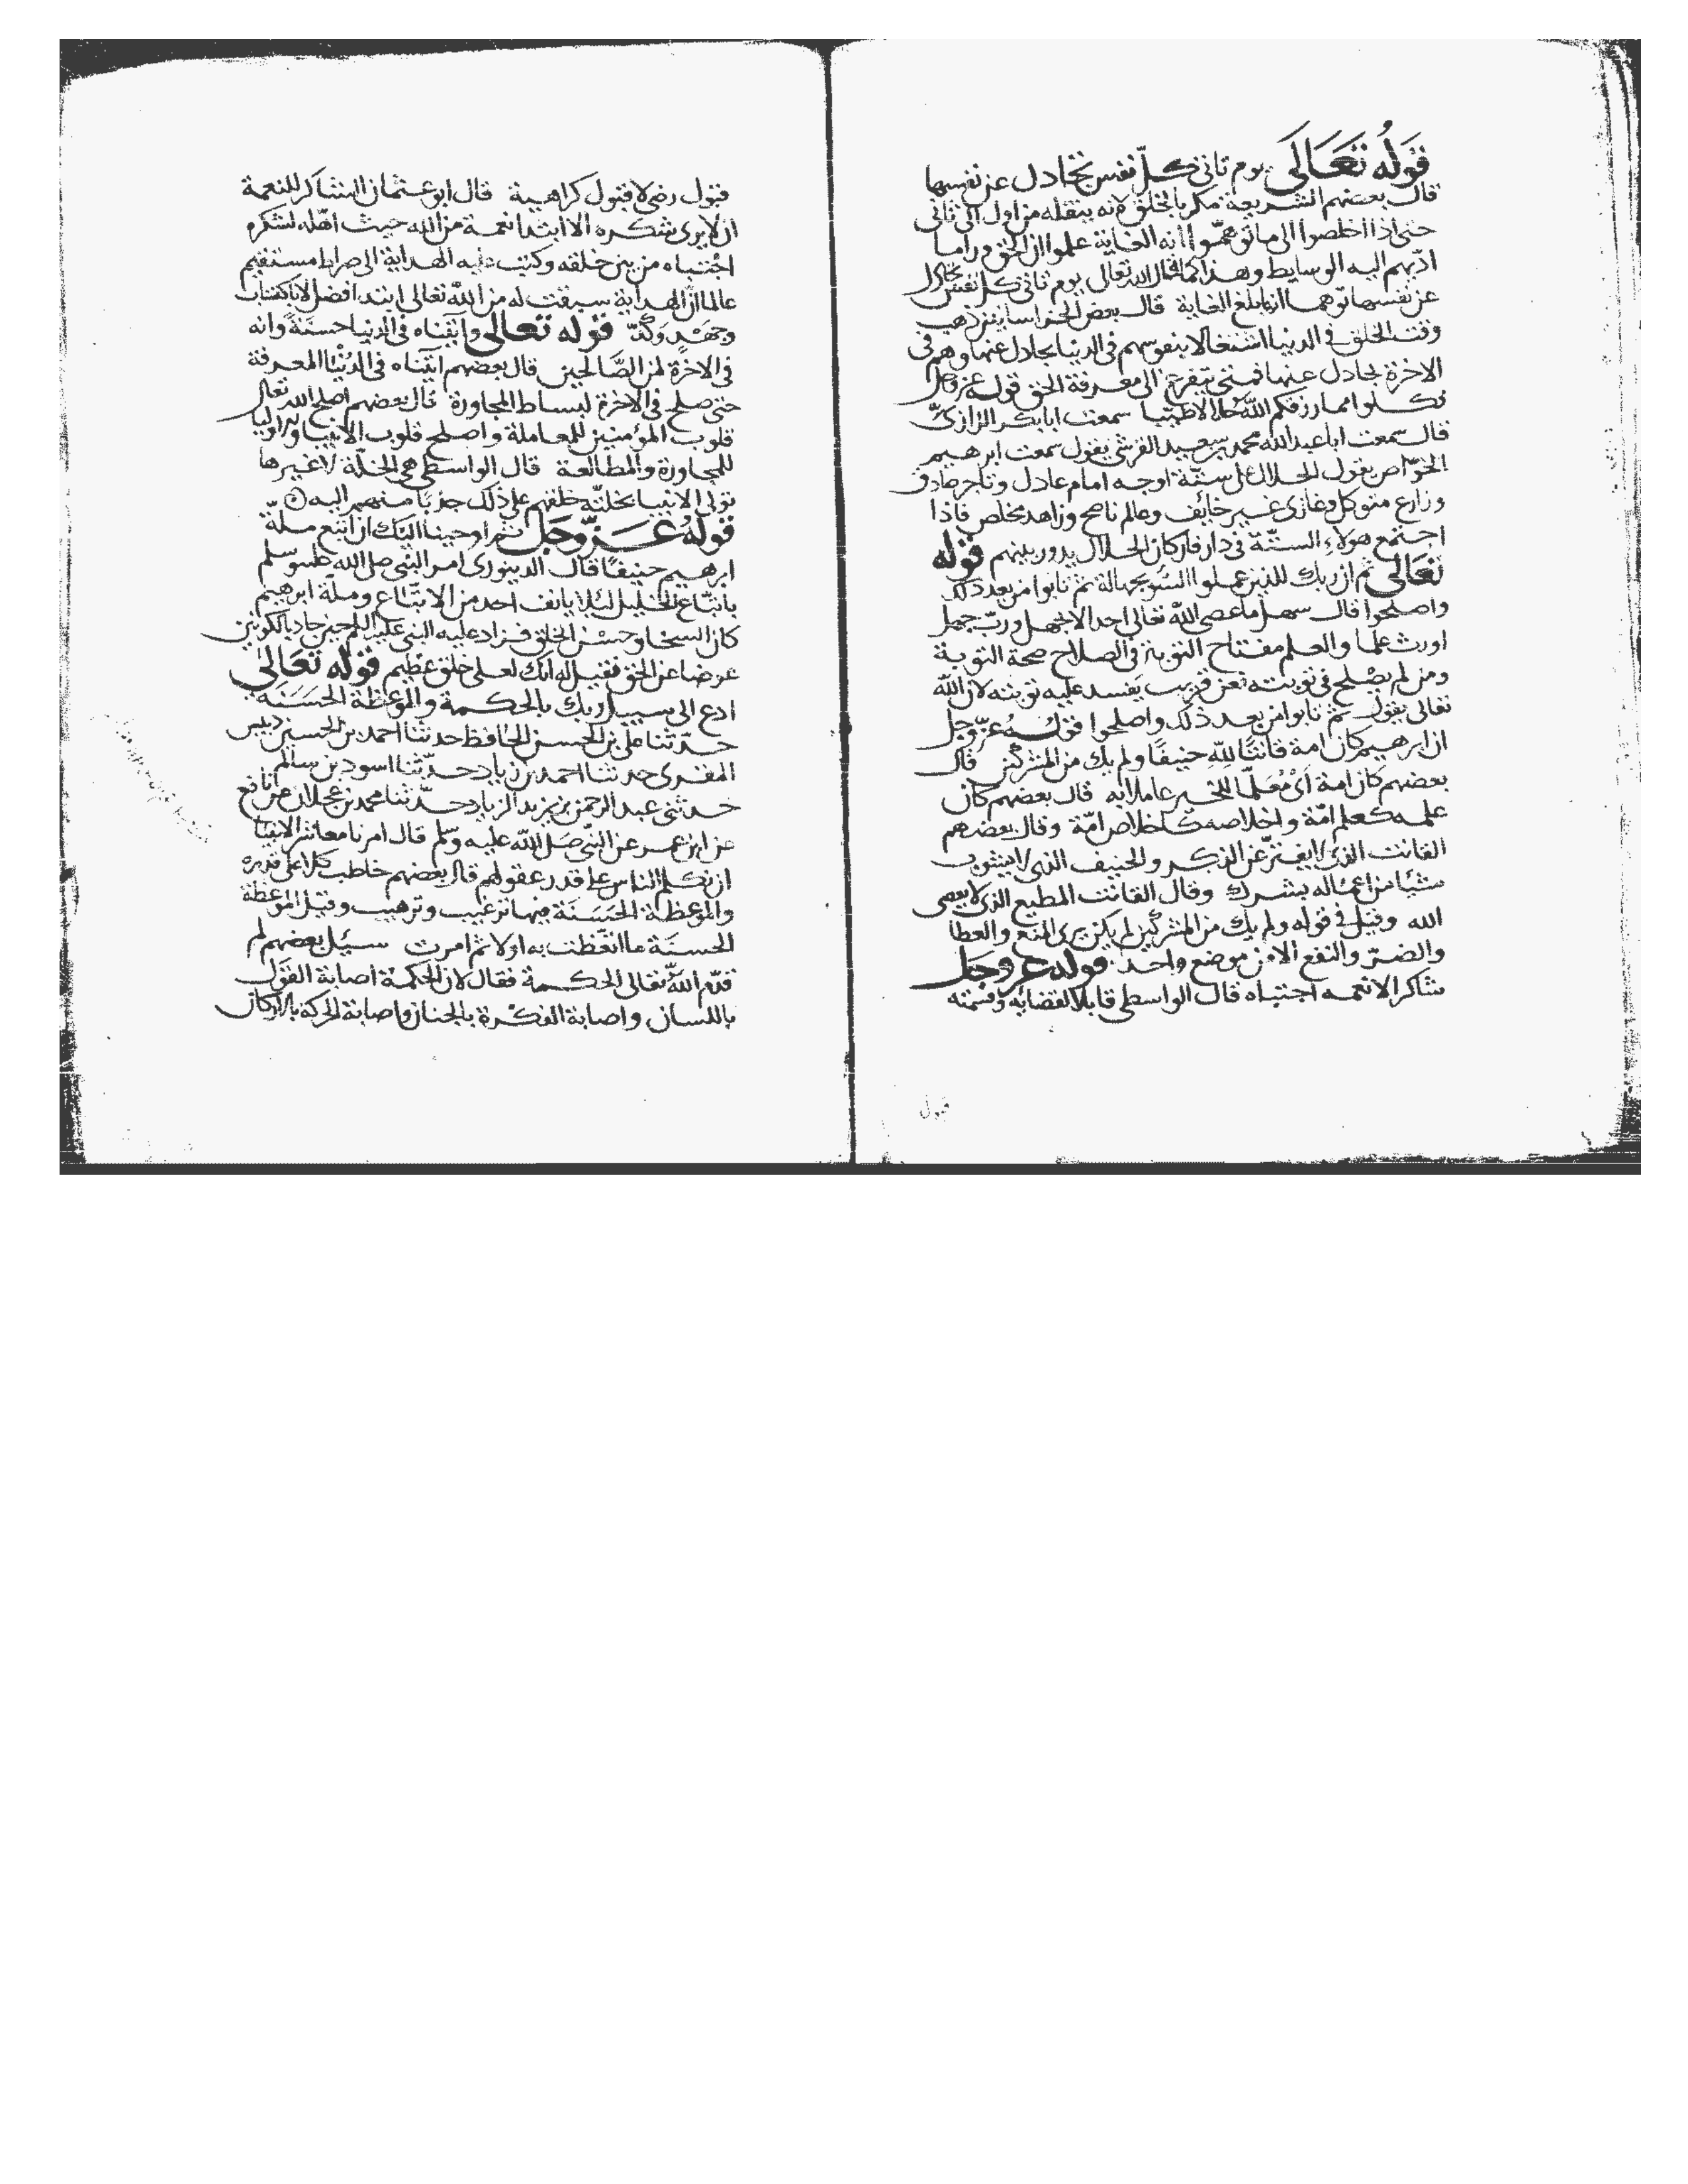 قوله تعالى يوم تاتى كل نفس تجادل عن نفسها
قال بعضهم الشريعة مكر بالخلق لانه ينقله من اول الى ثانى
حتى اذا اخلصوا الى ما توهموا انه الغاية علموا ان الحق وراما
اذيهم اليه الوسايط وهذا كما قال الله تعالى يوم تاتى كل نفس تجادل
عن نفسها توهما انها بلغ الغاية قال بعض الخراسانيين ذهب
وقت الخلق فى الدنيا اشتغالا بنفوسهم فى الدنيا يجادل عنها وهم فى
الاخرة يجادل عنها فمتى يتفرغ الى معرفة الحق قوله عز وجل
فكلوا مما رزقكم الله حلالا طيبا سمعت ابا بكر الرازى
قال سمعت ابا عبد الله محمد بن سعيد القرشى يقول سمعت ابرهيم
الخواص يقول الحلال على ستة اوجه امام عادل وتاجر صادق
وزارع متوكل وغازى غير خايف وعالم ناصح وزاهد مخلص فاذا
اجتمع هولاء الستة فى دار فان كان الحلال يدور بينهم قوله
تعالى ثم ان ربك للذين عملوا السو بجهالة ثم تابوا من بعد ذلك
واصلحوا قال سهل ما عصى الله تعالى احد الا بجهل ورب جهل
اورث علما والعلم مفتاح التوبة فى الصلاح صحة التوبة
ومن لم يصلح فى توبته فعن قريب يفسد عليه توبته لان الله
تعالى يقول ثم تابوا من بعد ذلك واصلحوا قوله عز وجل
ان ابرهيم كان امة قانتا لله حنيفا ولم يك من المشركين قال
بعضهم كان امة اى معلما للخير عاملا به قال بعضهم كان
علمه كعلم امة واخلاصه كاخلاص امة وقال بعضهم
القانت الذى لا يفتر عن الذكر والحنيف الذى لا يشوب
شيئا من اعماله بشرك وقال القانت المطيع الذى لا يعصى
الله وقيل فى قوله ولم يك من المشركين لم يكن يرى المنع والعطا
والضر والنفع الا من موضع واحد قوله عز وجل
شاكرا لانعمه اجتباه قال الواسطى قابلا لقضائه وقسمته
قبول
قبول رضى لا قبول كراهية قال ابو عثمان الشاكر للنعمة
ان لا يرى شكره الا ابتدا نعمة من الله حيث اهله لشكره
اجتباه من بين خلقه وكتب عليه الهداية الى صراط مستقيم
عالما ان الهداية سبقت له من الله تعالى ابتدا فضل لا باكتساب
وجهد وكد قوله تعالى واتيناه فى الدنيا حسنة وانه
فى الاخرة لمن الصالحين قال بعضهم اتيناه فى الدنيا المعرفة
حتى صلح فى الاخرة لبساط المجاورة قال بعضهم اصلح الله تعالى
قلوب المؤمنين للمعاملة واصلح قلوب الانبيا والاوليا
للمجاورة والمطالعة قال الواسطى هى الخلة لا غيرها
تولى الانبيا بخلته خلقهم على ذلك جذبا منهم اليه
قوله عز وجل ثم اوحينا اليك ان اتبع ملة
ابرهيم حنيفا قال الدينورى امر النبى صلى الله عليه وسلم
باتباع الخليل ليلا يانف احد من الاتباع وملة ابرهيم
كان السخا وحسن الخلق فزاد عليه النبى عليه السلم حين جاد بالكونين
عوضا عن الحق فقيل له انك لعلى خلق عظيم قوله تعالى
ادع الى سبيل ربك بالحكمة والموعظة الحسنة
حدثنا على بن الحسن الحافظ حدثنا احمد بن الحسين دبيس
المقرى حدثنا احمد بن زياد حدثنا اسود بن سالم
حدثنى عبد الرحمن بن يزيد الزياد حدثنا محمد بن عجلان عن نافع
عن ابن عمر عن النبى صلى الله عليه وسلم قال امرنا معاشر الانبيا
ان نكلم الناس على قدر عقولهم قال بعضهم خاطب كلا على قدره
والموعظة الحسنة فيها ترغيب وترهيب وقيل الموعظة
الحسنة ما اتعظت به اولا ثم امرت سئيل بعضهم لم
قدم الله تعالى الحكمة فقال لان الحكمة اصابة القول
باللسان واصابة الفكرة بالجنان واصابة الحركة بالاركان